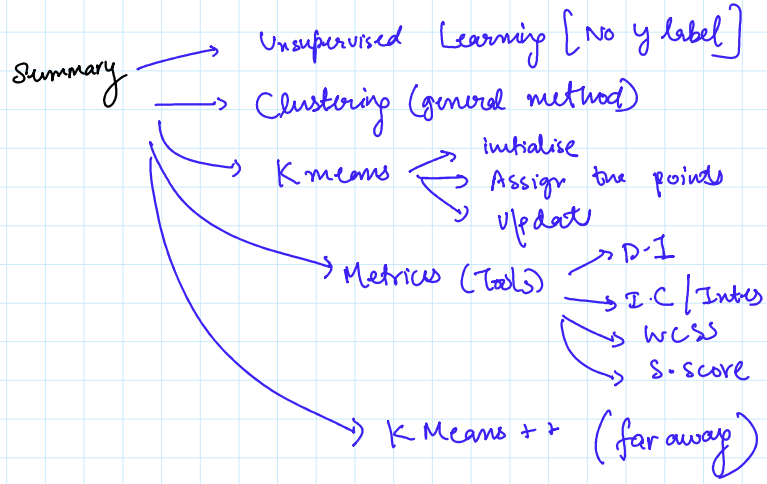 Unsupervised Learning [No y label]
Summary
Clustering (general method)
K means
initialise
Assign the points
Update
Metrices (Tools)
D-I
I.C | Inter
WCSS
S.score
K Means ++ (far away)